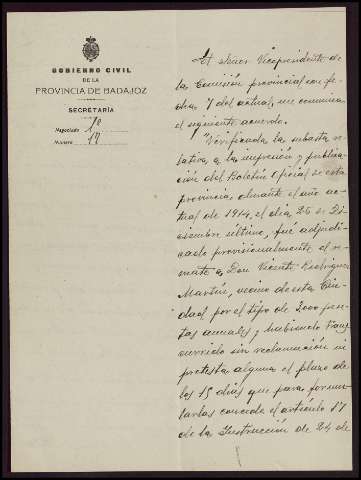 GOBIERNO CIVIL
DE LA
PROVINCIA DE BADAJOZ
SECRETARÍA
Negociado 1º
Número 17
El Señor Vicepresidente de
la Comisión provincial con fe-
cha 7 del actual, me comunica
el siguiente acuerdo.
"Verificada la subasta re-
lativa a la impresión y publica-
ción del Boletín Oficial de esta
provincia, durante el año ac-
tual de 1914, el día 26 de Di-
ciembre último, fué adjudi-
cado provisionalmente el re-
mate a Don Vicente Rodríguez
Martín, vecino de esta Ciu-
dad por el tipo de 2000 pese-
tas anuales y habiendo trans-
currido sin reclamación ni
protesta alguna el plazo de
los 15 días que para formu-
larlas concede el artículo 17
de la Instrucción de 24 de